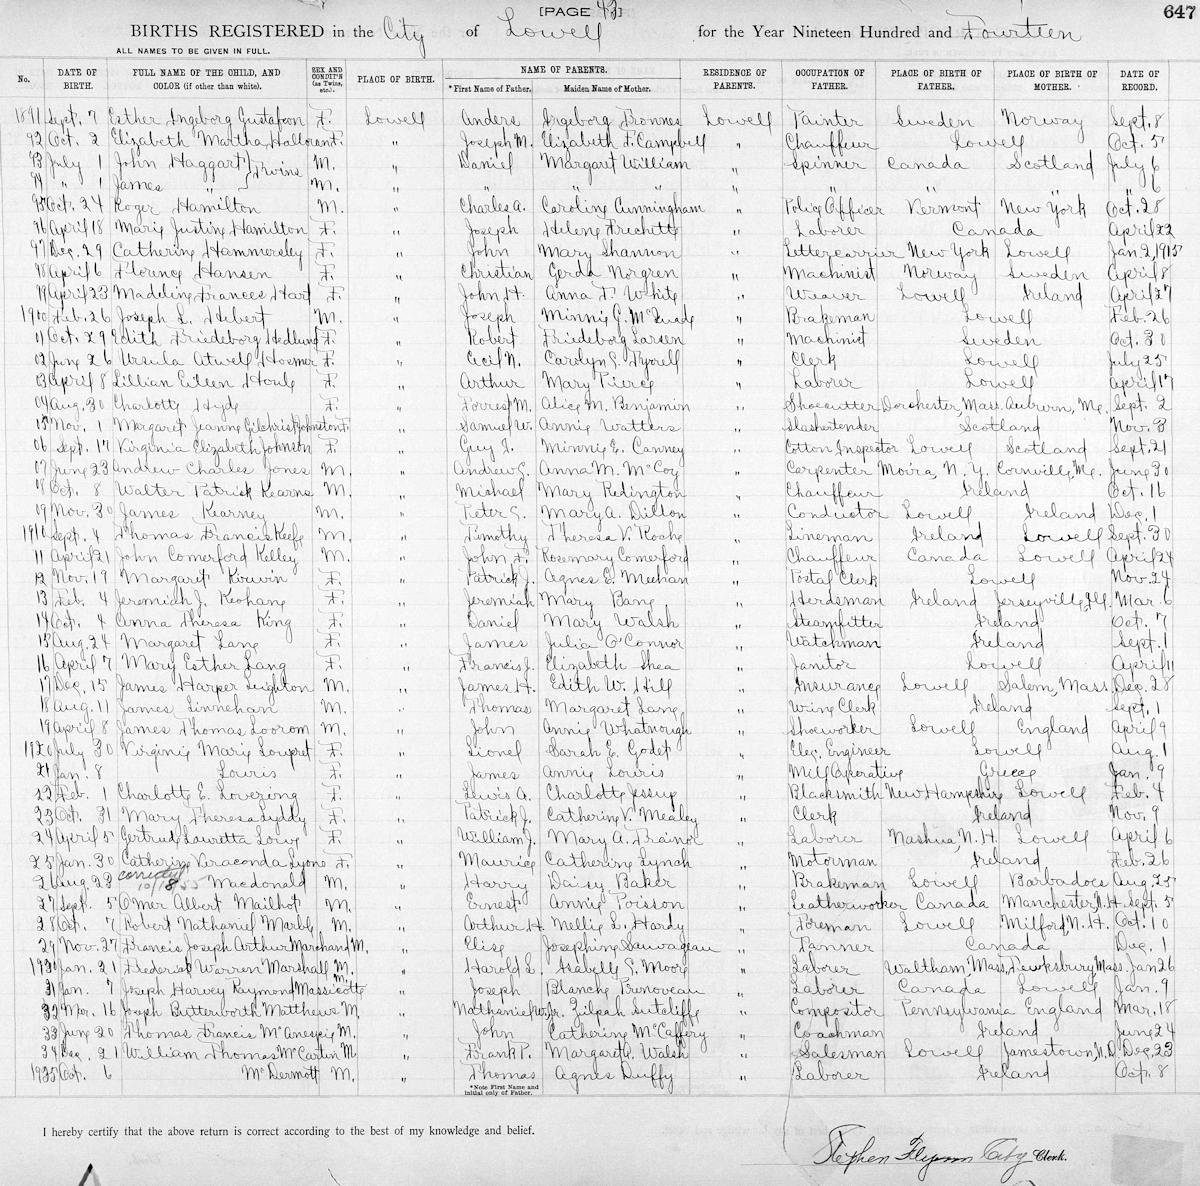 [PAGE 43] 647
BIRTHS REGISTERED in the City of Lowell for the Year Nineteen Hundred and Fourteen
ALL NAMES TO BE GIVEN IN FULL.
No. DATE OF BIRTH. FULL NAME OF THE CHILD, AND COLOR (if other than white). SEX AND CONDIT'N (as Twins, etc.). PLACE OF BIRTH. NAME OF PARENTS. *First Name of Father. Maiden Name of Mother. RESIDENCE OF PARENTS. OCCUPATION OF FATHER. PLACE OF BIRTH OF FATHER. PLACE OF BIRTH OF MOTHER. DATE OF RECORD.
1891 Sept. 7 Esther Ingeborg Gustafson F. Lowell Anders Ingeborg Lowell Painter Sweden Norway Sept. 8
92 Oct. 2 Elizabeth Martha Halloran F. " Joseph M. Elizabeth F. Campbell " Chauffeur Lowell Oct. 5
93 July 1 John Haggart } Twins M. " Daniel Margaret William " Spinner Canada Scotland July 6
94 " 1 James " M. " " " " " " " " " 6
95 Oct. 24 Roger Hamilton M. " Charles A. Caroline Cunningham " Police Officer Vermont New York Oct. 28
96 April 18 Marie Justine Hamilton F. " Joseph Helene Frechette " Laborer Canada April 22
97 Dec. 29 Catherine Hammersley F. " John Mary Shannon " Letter carrier New York Lowell Jan. 2, 1915
98 April 6 Florence Hansen F. " Christian Gerda Norgren " Machinist Norway Sweden April 8
99 April 23 Madeline Frances Hart F. " John H. Anna F. White " Weaver Lowell Ireland April 27
1900 Feb. 26 Joseph L. Hebert M. " Joseph Minnie G. McQuade " Brakeman Lowell Feb. 26
01 Oct. 29 Edith Friedeborg Hedlund F. " Robert Friedeborg Larsen " Machinist Sweden Oct. 30
02 June 26 Ursula Atwell Hosmer F. " Cecil N. Carolyn S. Tyrrell " Clerk Lowell July 25
03 April 8 Lillian Eileen Houle F. " Arthur Mary Pierce " Laborer Lowell April 17
04 Aug. 30 Charlotte Hyde F. " Forrest M. Alice M. Benjamin " Shoecutter Dorchester, Mass. Auburn, Me. Sept. 2
05 Nov. 1 Margaret Jeanne Gilchrist Johnston F. " Samuel W. Annie Watters " Slashertender Scotland Nov. 3
06 Sept. 17 Virginia Elizabeth Johnson F. " Guy L. Minnie E. Canney " Cotton Inspector Lowell Scotland Sept. 21
07 June 23 Andrew Charles Jones M. " Andrew G. Anna M. McCoy " Carpenter Moira, N.Y. Cornville, Me. June 30
08 Oct. 8 Walter Patrick Kearns M. " Michael Mary Redington " Chauffeur Ireland Oct. 16
09 Nov. 30 James Kearney M. " Peter S. Mary A. Dillon " Conductor Lowell Ireland Dec. 1
1910 Sept. 4 Thomas Francis Keefe M. " Timothy Theresa V. Roche " Lineman Ireland Lowell Sept. 30
11 April 21 John Comerford Kelley M. " John F. Rosemary Comerford " Chauffeur Canada Lowell April 24
12 Nov. 19 Margaret Kirwin F. " Patrick J. Agnes E. Meehan " Postal Clerk Lowell Nov. 24
13 Feb. 4 Jeremiah J. Keohane F. " Jeremiah Mary Bane " Herdsman Ireland Jerseyville, Ill. Mar. 6
14 Oct. 4 Anna Theresa King F. " Daniel Mary Walsh " Steamfitter Ireland Oct. 7
15 Aug. 24 Margaret Lane F. " James Julia O'Connor " Watchman Ireland Sept. 1
16 April 7 Mary Esther Lang F. " Francis J. Elizabeth Shea " Janitor Lowell April 11
17 Dec. 15 James Harper Leighton M. " James H. Edith W. Hill " Insurance Lowell Salem, Mass. Dec. 28
18 Aug. 11 James Linnehan M. " Thomas Margaret Lane " Wine Clerk Ireland Sept. 1
19 April 8 James Thomas Loorom M. " John Annie Whatnough " Shoeworker Lowell England April 9
1920 July 30 Virginie Marie Loupret F. " Lionel Sarah E. Godet " Elec. Engineer Lowell Aug. 1
21 Jan. 8 Louris F. " James Annie Louris " Mill Operative Greece Jan. 9
22 Feb. 1 Charlotte E. Lovering F. " Lewis A. Charlotte Jessup " Blacksmith New Hampshire Lowell Feb. 4
23 Oct. 31 Mary Theresa Lyddy F. " Patrick J. Catherine V. Mealey " Clerk Ireland Nov. 9
24 April 5 Gertrude Lauretta Lowe F. " William J. Mary A. Trainor " Laborer Nashua, N.H. Lowell April 6
25 Jan. 30 Catherine Veraconda Lyons F. " Maurice Catherine Lynch " Motorman Ireland Feb. 26
26 Aug. 23 corrected 10/18/55 Macdonald M. " Harry Daisy Baker " Brakeman Lowell Barbadoes Aug. 25
27 Sept. 5 Omer Albert Mailhot M. " Ernest Annie Poisson " Leatherworker Canada Manchester, N.H. Sept. 5
28 Oct. 7 Robert Nathaniel Marble M. " Arthur H. Nellie L. Hardy " Foreman Lowell Milford, N.H. Oct. 10
29 Nov. 27 Francis Joseph Arthur Marchand M. " Elise Josephine Sauvageau " Tanner Canada Dec. 1
1930 Jan. 21 Frederick Warren Marshall M. " Harold L. Isabelle G. Moore " Laborer Waltham, Mass. Tewksbury, Mass. Jan. 26
31 Jan. 7 Joseph Harvey Raymond Massicotte M. " Joseph Blanche Bruneau " Laborer Canada Lowell Jan. 9
32 Mar. 16 Joseph Butterworth Matthews M. " Nathaniel W. Jr. Zilpah Sutcliffe " Compositor Pennsylvania England Mar. 18
33 June 20 Thomas Francis McAnespie M. " John Catherine McCaffery " Coachman Ireland June 24
34 Dec. 21 William Thomas McCartin M. " Frank P. Margaret Walsh " Salesman Lowell Jamestown, N.D. Dec. 23
1935 Oct. 6 McDermott M. " Thomas Agnes Duffy " Laborer Ireland Oct. 8
*Note First Name and initial only of Father.
I hereby certify that the above return is correct according to the best of my knowledge and belief.
Stephen Flynn City Clerk.